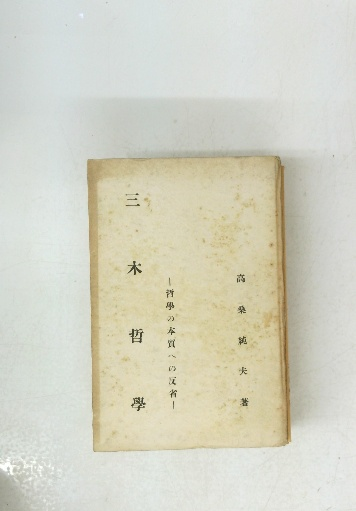 高桑純夫著
—哲學の本質への反省—
三木哲學